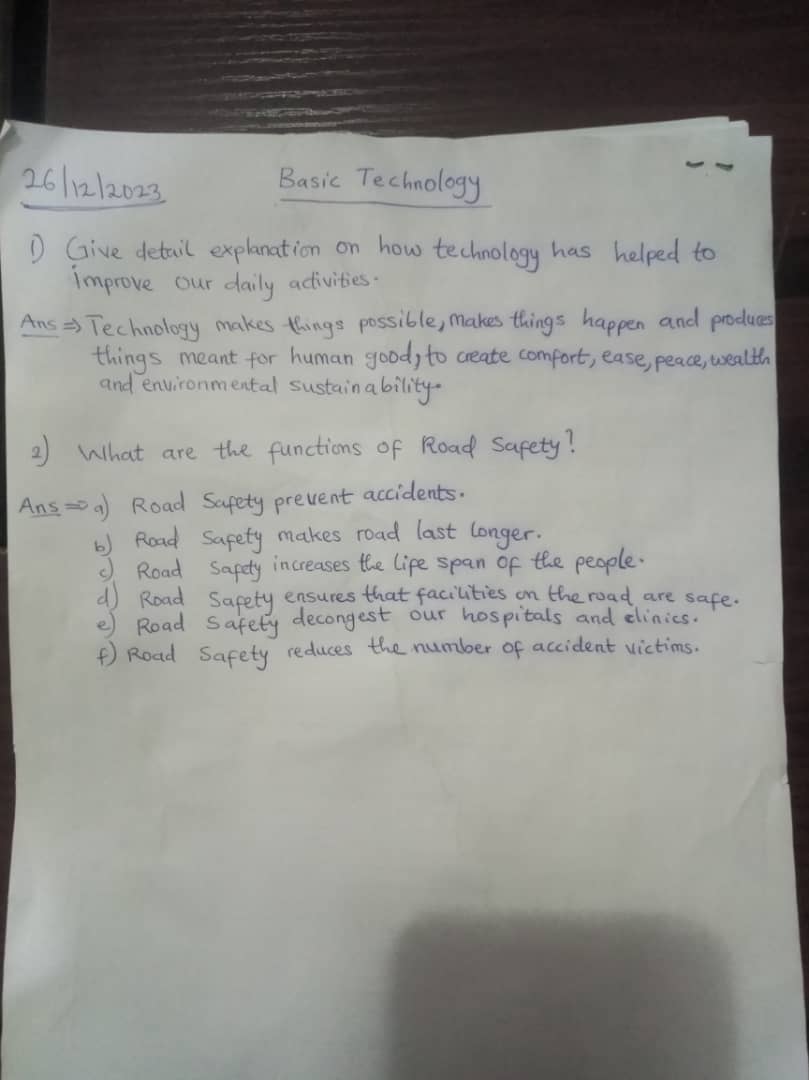 26/12/2023 Basic Technology
1) Give detail explanation on how technology has helped to
improve our daily activities.
Ans => Technology makes things possible, makes things happen and produces
things meant for human good, to create comfort, ease, peace, wealth
and environmental sustainability.
2) What are the functions of Road Safety?
Ans => a) Road Safety prevent accidents.
b) Road Safety makes road last longer.
c) Road Safety increases the life span of the people.
d) Road Safety ensures that facilities on the road are safe.
e) Road Safety decongest our hospitals and clinics.
f) Road Safety reduces the number of accident victims.